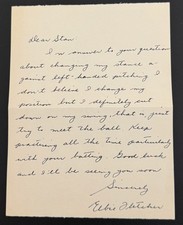 Dear Stan
In answer to your question
about changing my stance a
gainst left-handed pitching I
don't believe I change my
position but I definitely cut
down on my swing, that is just
try to meet the ball. Keep
practicing all the time particularly
with your batting. Good luck
and I'll be seeing you soon
Sincerely
Elbie Fletcher